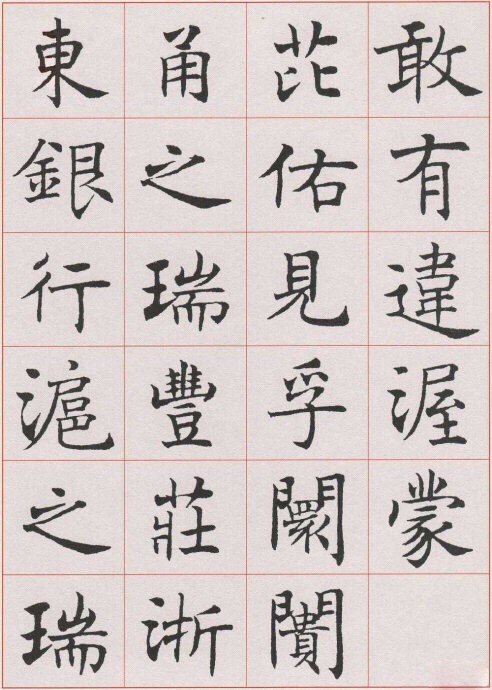 敢有違渥蒙
芘佑見孚闤闠
甬之瑞豐莊浙
東銀行滬之瑞